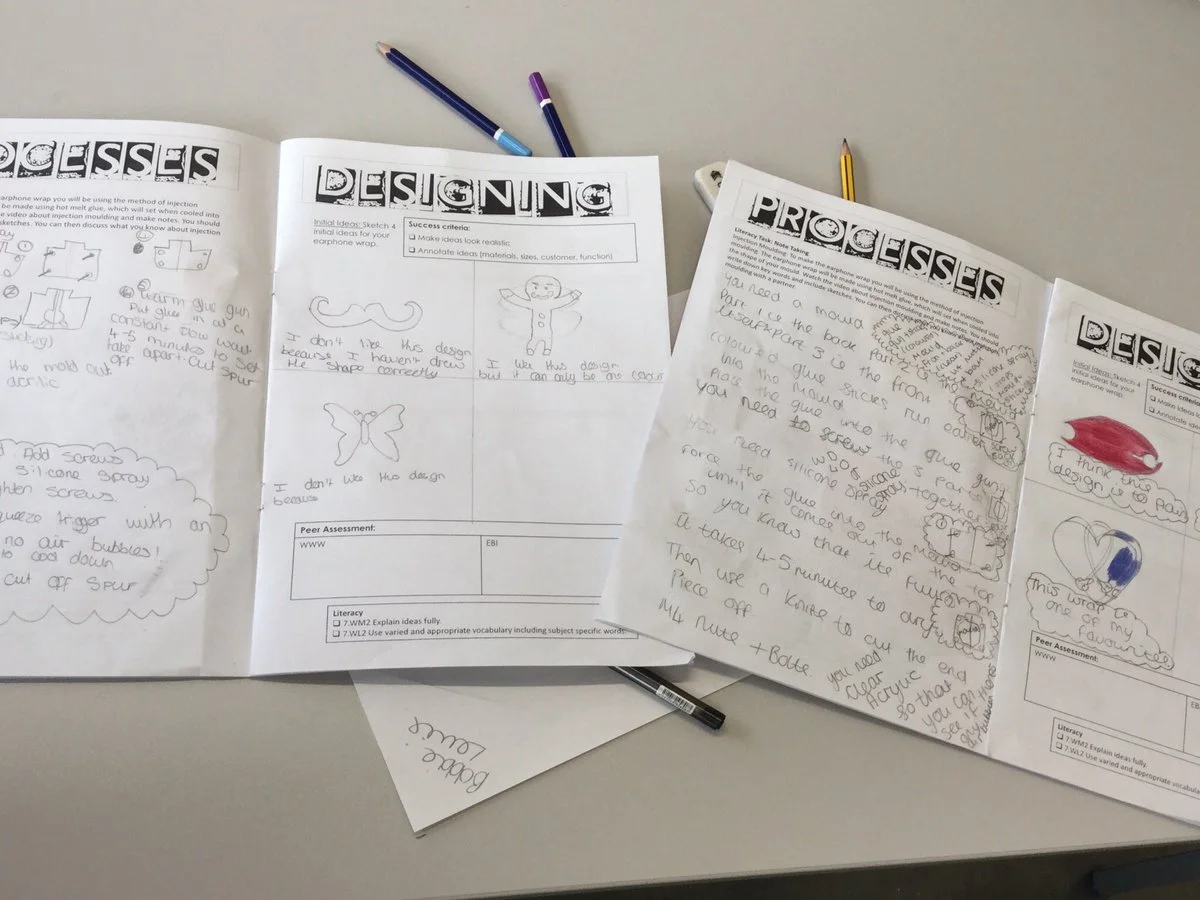 OCESSES
earphone wrap you will be using the method of injection
be made using hot melt glue, which will set when cooled into
e video about injection moulding and make notes. You should
sketches. You can then discuss what you know about injection
warm glue gun
Put glue in at a
constant flow wait
4-5 minutes to set
take apart. Cut spur
off
the mold out
acrylic
Add screws
silicone spray
ghten screws.
queeze trigger with an
no air bubbles!
to cool down
cut off spur
DESIGNING
Initial Ideas: Sketch 4
initial ideas for your
earphone wrap.
Success criteria:
Make ideas look realistic
Annotate ideas (materials, sizes, customer, function)
I don't like this design
because I haven't drew
the shape correctly
I like this design
but it can only be one colour
I don't like this design
because
Peer Assessment:
WWW
EBI
Literacy
7.WM2 Explain ideas fully.
7.WL2 Use varied and appropriate vocabulary including subject specific words.
Bobbie
Lewie
PROCESSES
Literacy Task: Note Taking
Injection Moulding: To make the earphone wrap you will be using the method of injection
moulding. The earphone wrap will be made using hot melt glue, which will set when cooled into
the shape of your mould. Watch the video about injection moulding and make notes. You should
write down key words and include sketches. You can then discuss what you know about injection
moulding with a partner.
You need a mould
Part 1 is the back Part 2 is the
itself Part 3 is the front
coloured glue sticks run
into the mould
Place the glue into the glue gun
you need to screw the 3 parts
together
You need silicone spray
WD04 silicone
spray
Force the glue into the mould
until it comes out of the top
so you know that its full
It takes 4-5 minutes to dry
Then use a knife to cut the end
Piece off
M4 nuts + Bolts.
you need
clear
Acrylic
so that
you can
see if theres
any bubbles
DESIG
Initial Ideas: Sketch 4
initial ideas for your
earphone wrap.
Success criteria
Make ideas
Annotate idea
I think this
design is to
This wrap is
one of my
favourites
Peer Assessment:
WWW
EB
Literacy
7.WM2 Explain ideas fully.
7.WL2 Use varied and appropriate vocabula